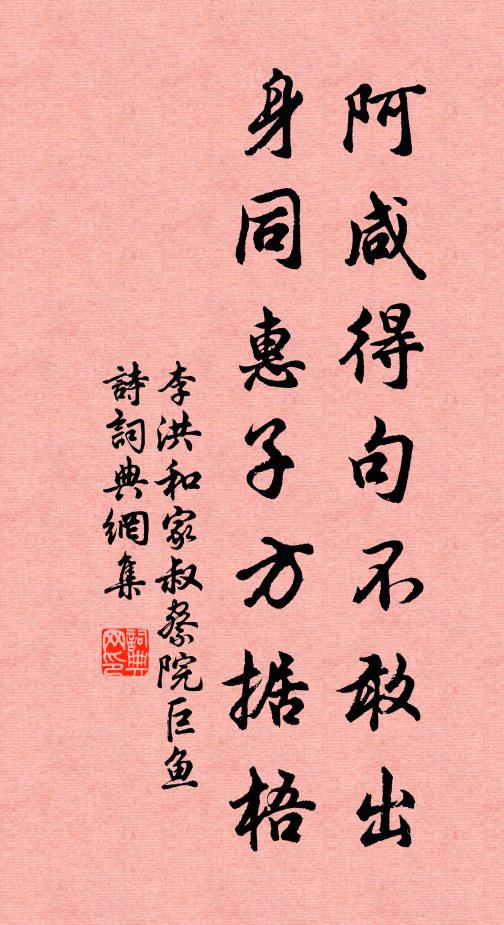 阿咸得句不敢出
身同惠子方据梧
李洪和家叔察院巨鱼
詩詞典網集
詞典网印